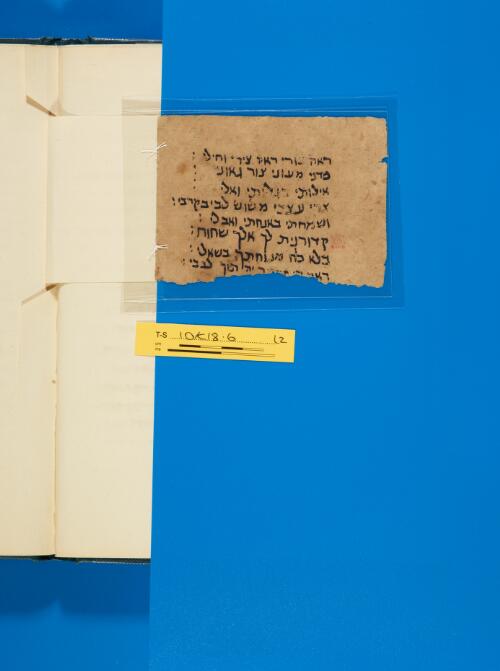 ראה צורי ראה צירי וחילי :
פדני מעוני צור גאוני
אילותי ואלי :
צרי עצבי משוש לבי בקרבי :
ושמחתי באנחתי ואבלי :
קדורנית לך אלך שחוח :
בלא כח בשאלי :
לבבי :
T-S 10K18.6 L2
cm
ins